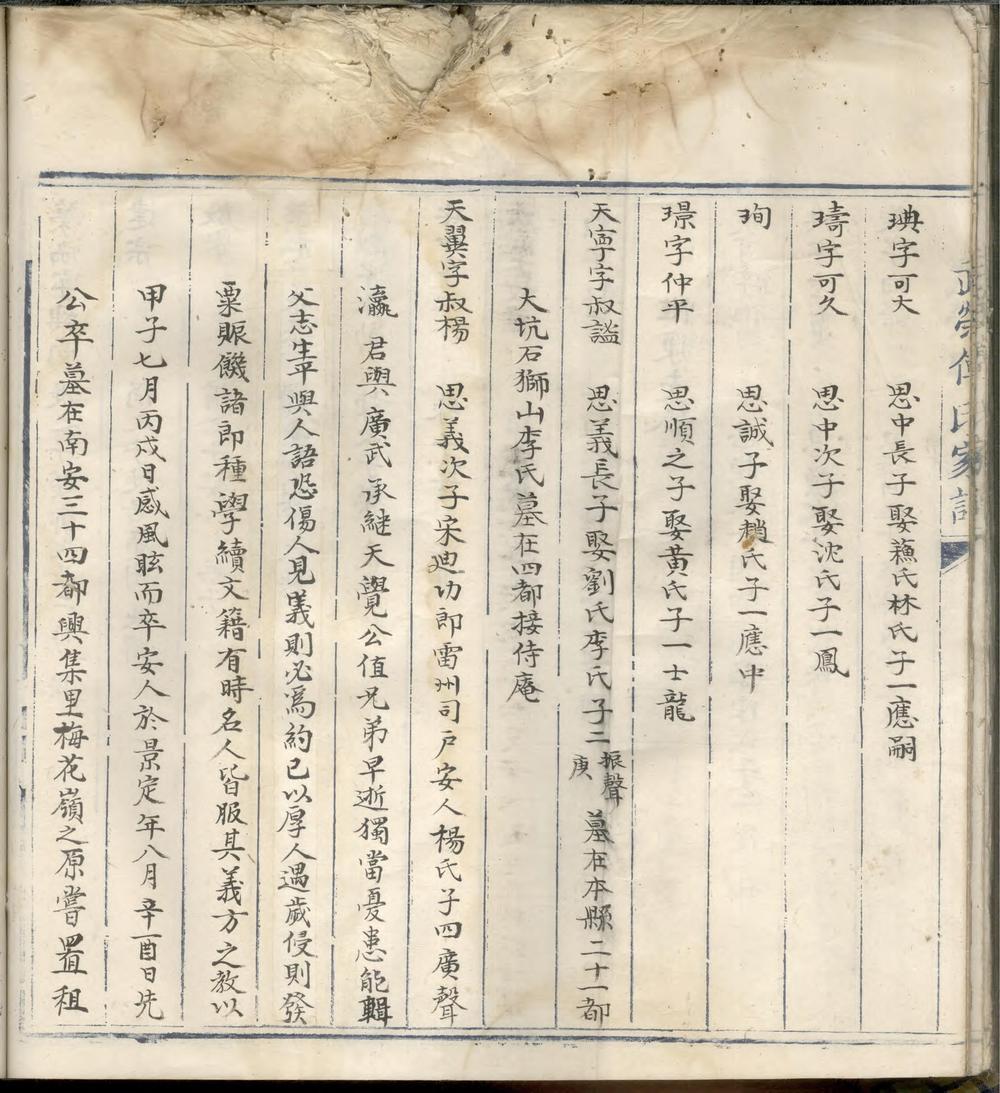 武榮傅氏家譜
琠字可大 思中長子娶蘓氏林氏子一應嗣
𤩶字可久 思中次子娶沈氏子一鳳
珣 思誠子娶趙氏子一應中
璟字仲平 思順之子娶黃氏子一士龍
天寧字叔謐 思義長子娶劉氏李氏子二振聲庚 墓在本縣二十一都
大坑石獅山李氏墓在四都接侍庵
天翼字叔楊 思義次子宋廸功郎雷州司戶安人楊氏子四廣聲
瀛 君與廣武承継天覺公值兄弟早逝獨當憂患能輯
父志生平與人語恐傷人見義則必為約己以厚人遇歲侵則發
粟賑饑諸郎種學績文籍有時名人皆服其義方之教以
甲子七月丙戍日感風眩而卒安人於景定年八月辛酉日先
公卒墓在南安三十四都興集里梅花嶺之原嘗置租